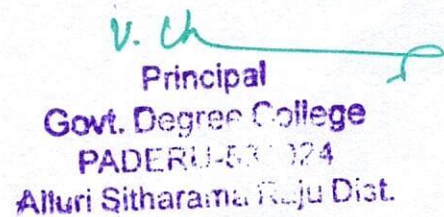 V. Ch
Principal
Govt. Degree College
PADERU-
Alluri Sitharama Raju Dist.